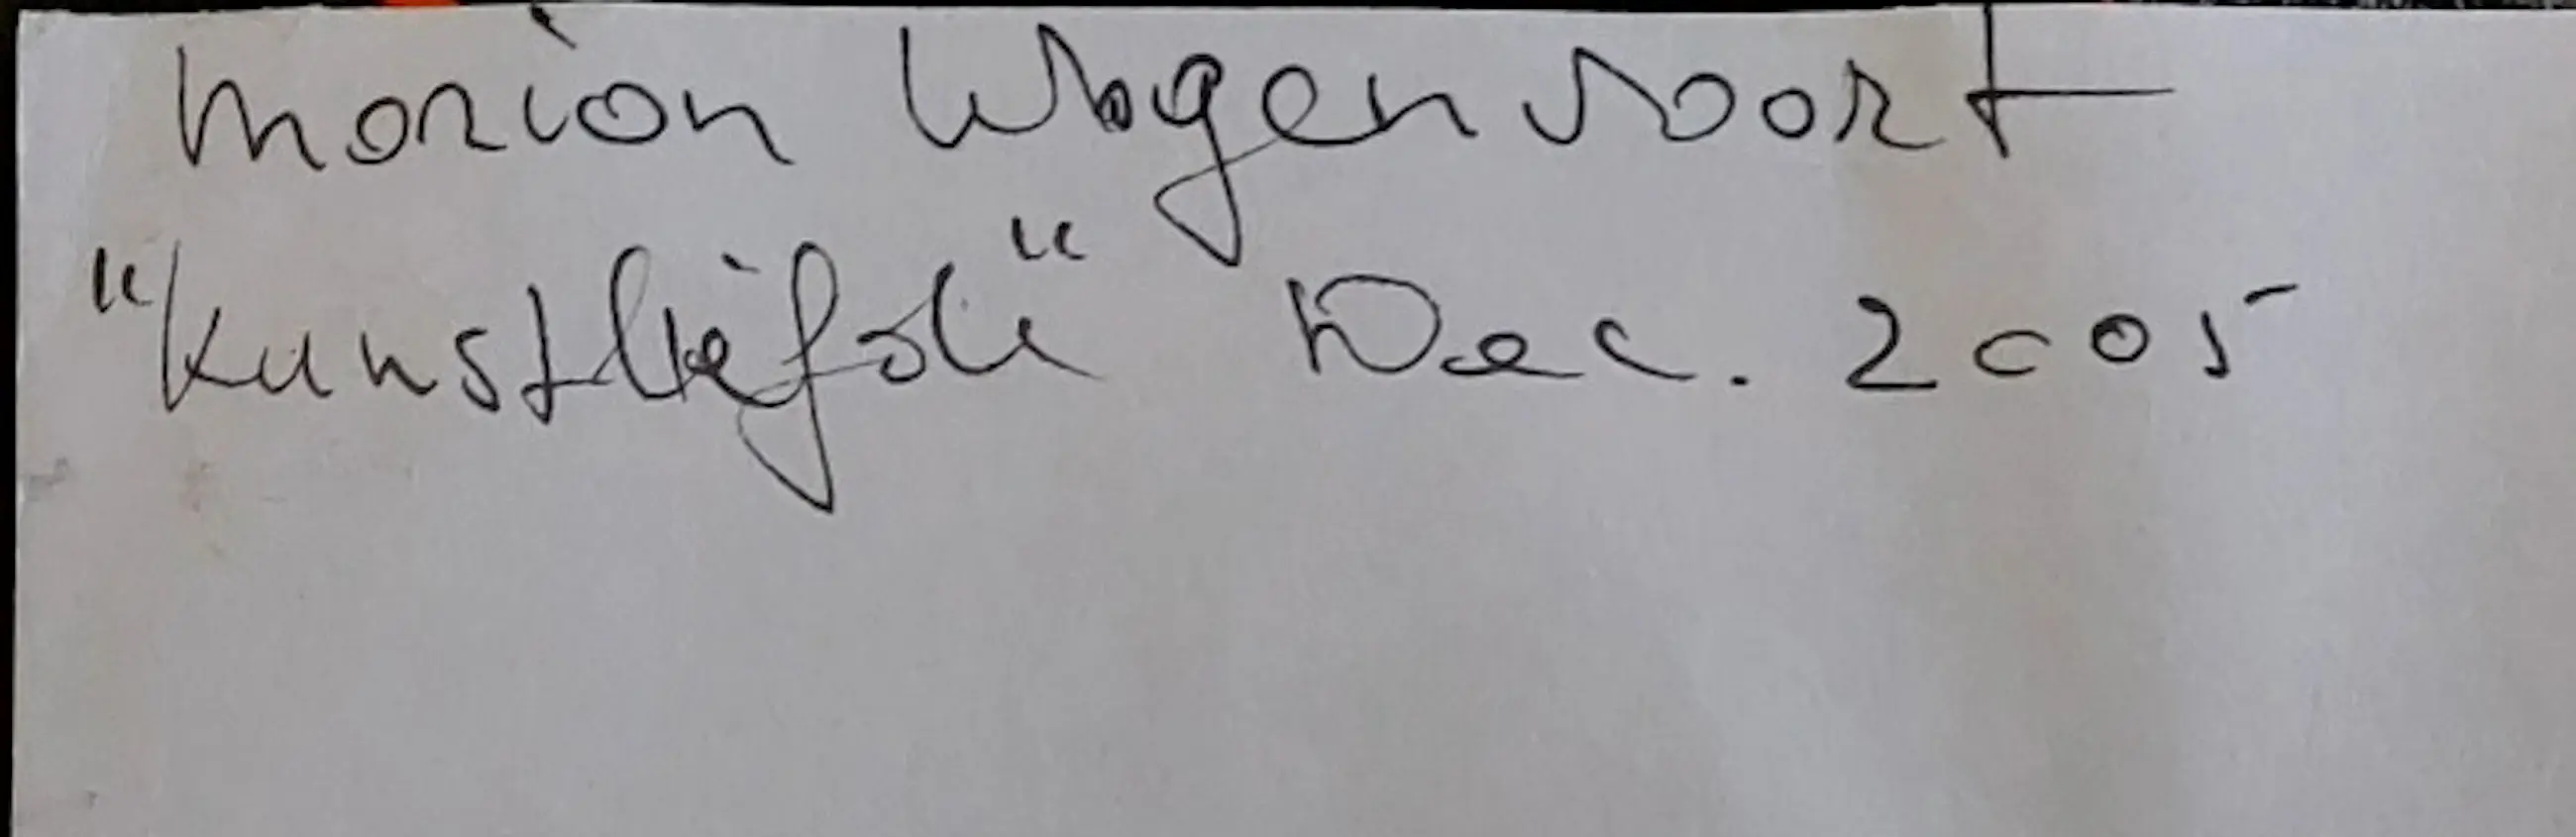 Marion Wagenvoort
"Kunstliefde" Dec. 2005